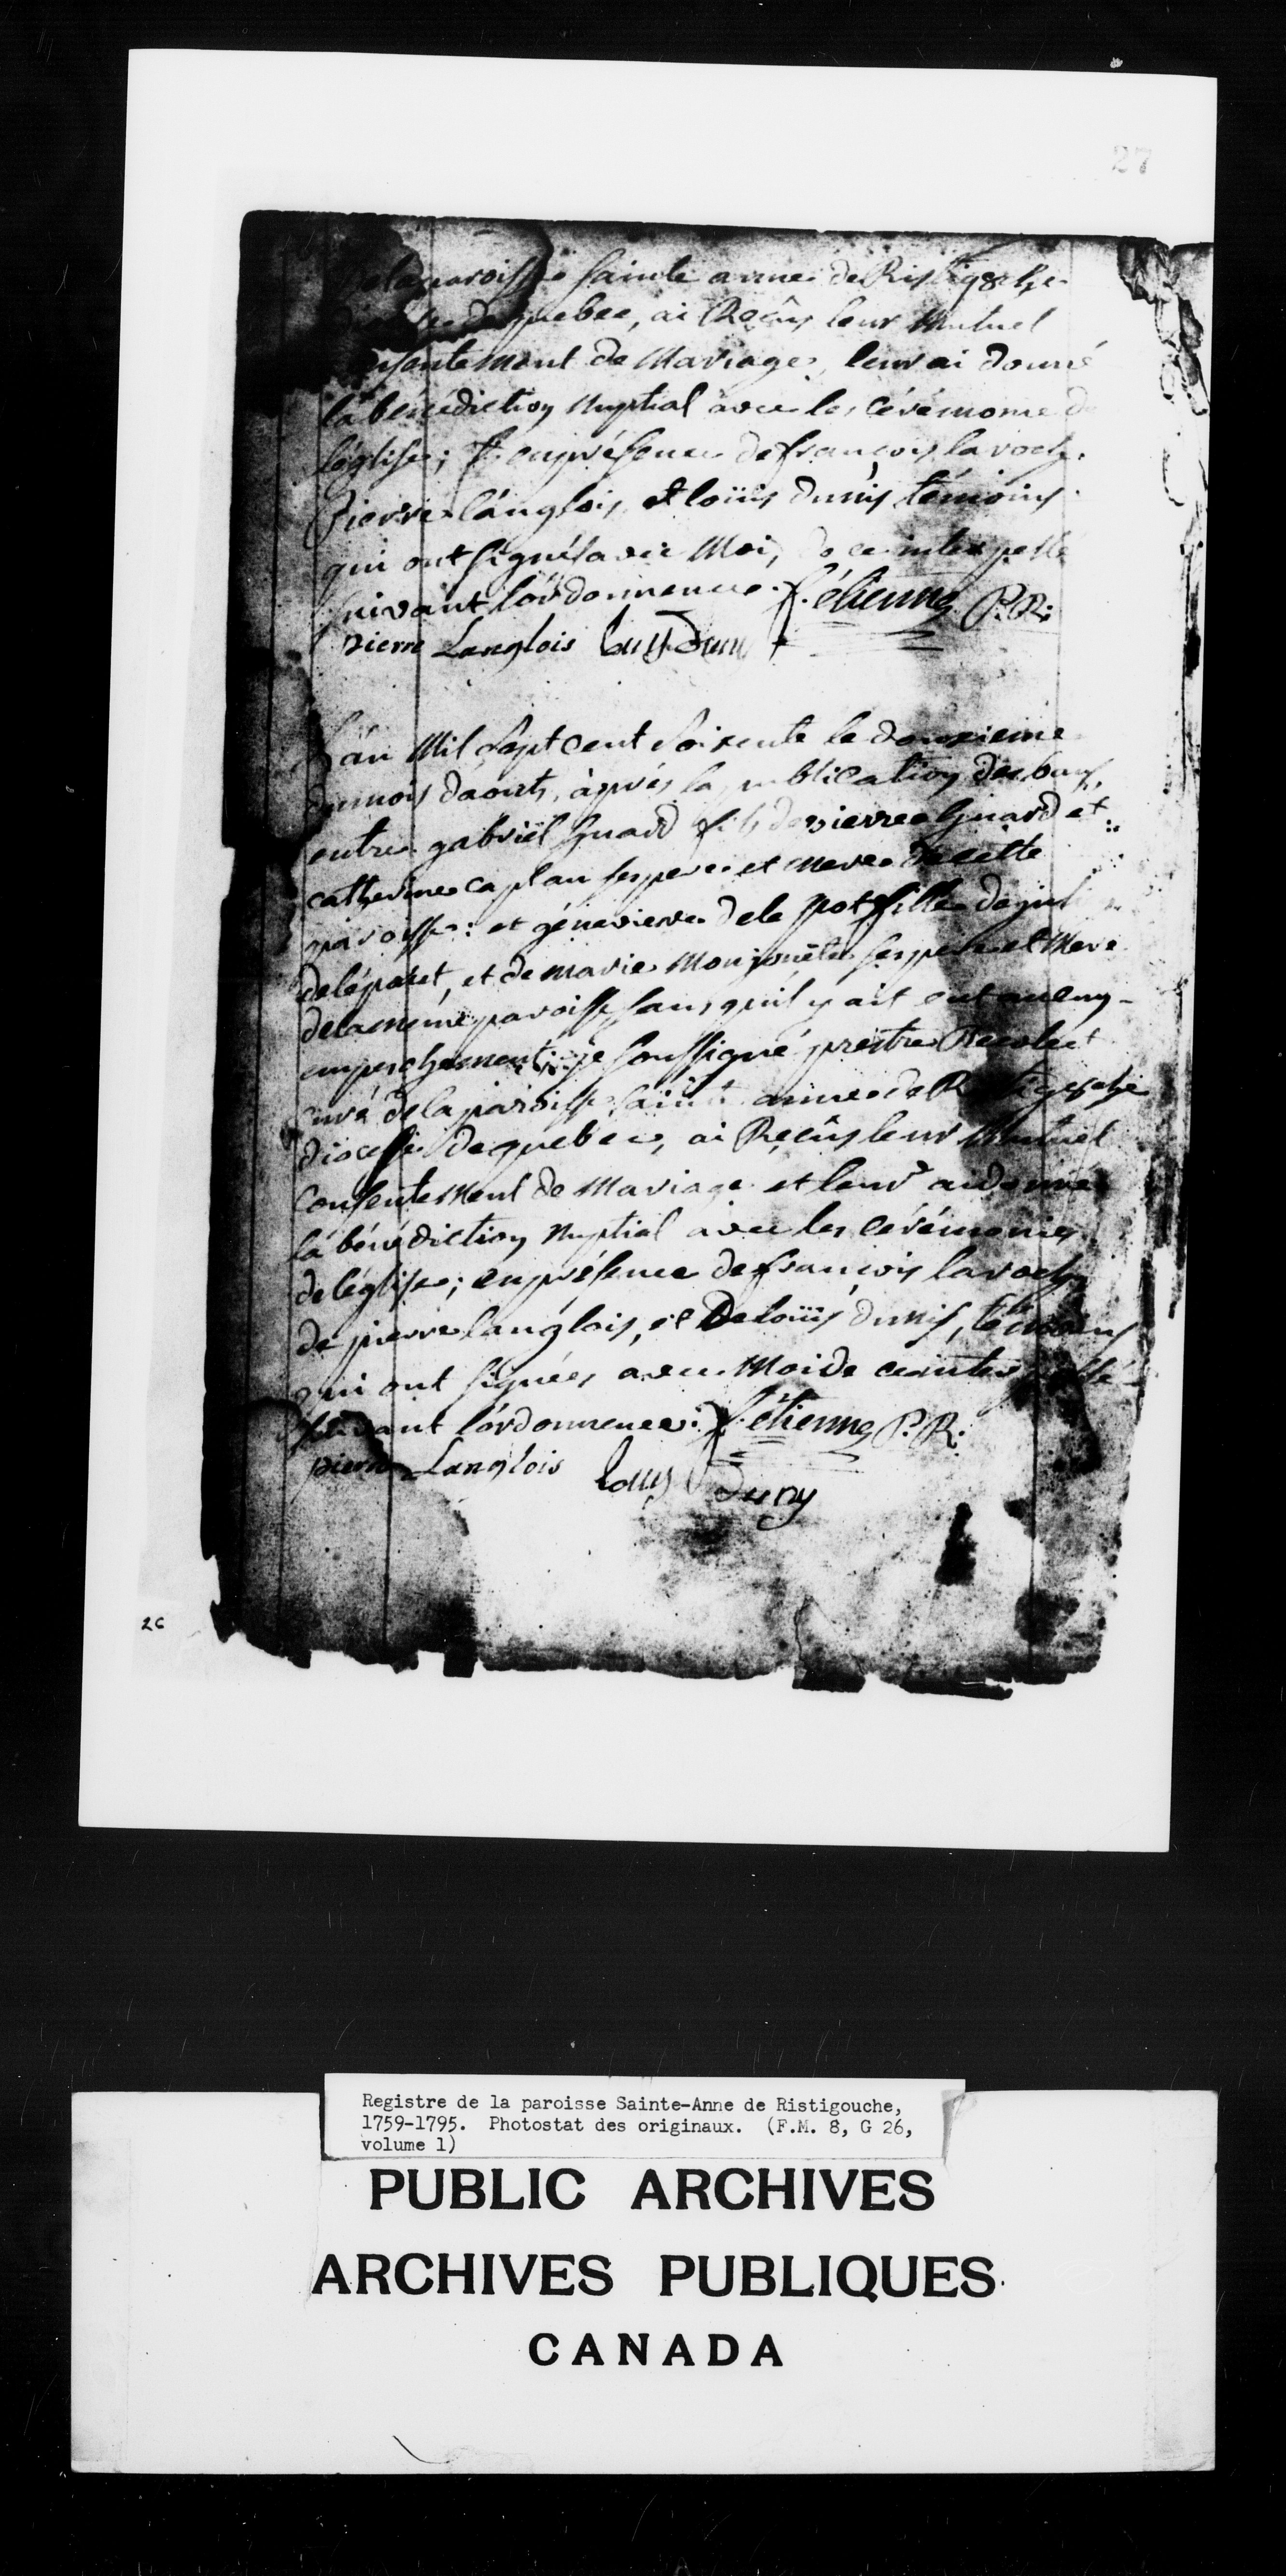 27
de la paroisse sainte anne de Ristig8che
de quebec, ai Reçûs leur Mutuel
consentement de Mariage, leur ai donné
la bénédiction Nuptial avec les cérémonie de
léglise; en présence de françois laroch.
Pierre lánglois, et loüis dunis témoins
qui ont signés avec Moi, de ce interpellé
suivant lórdonnence. f. étienne P. R.
pierre Langlois louys duny
Lán Mil sept Cent soixente le douzieme
du mois daouts, àprés la publication des bans
entre gabriël huard fils de pierre huard et
catherine caplan ses pere et mere de cette
paroisse: et génevieve dele pot fille de
delépaut, et de marie ses pere et Mere
de la mème paroisse sans quil y ait eut aucuny
empeschement: je soussigné prestre Recolect
curé de la paroisse sainte anne de Ristig8che
diocesse de quebec, ai Reçûs leur Mutuel
Consentement de Mariage et leur ai donné
lá bénédiction Nuptial avec les Cérémonies
de léglise; en présence de françois laroch
de pierre langlois, et De loüis dunis, témoins
qui ont signées avec Moi de ce interpellé
suivant lórdonnence: f. étienne P. R.
pierre Langlois louys Duny
26
Registre de la paroisse Sainte-Anne de Ristigouche,
1759-1795. Photostat des originaux. (F.M. 8, G 26,
volume 1)
PUBLIC ARCHIVES
ARCHIVES PUBLIQUES
CANADA